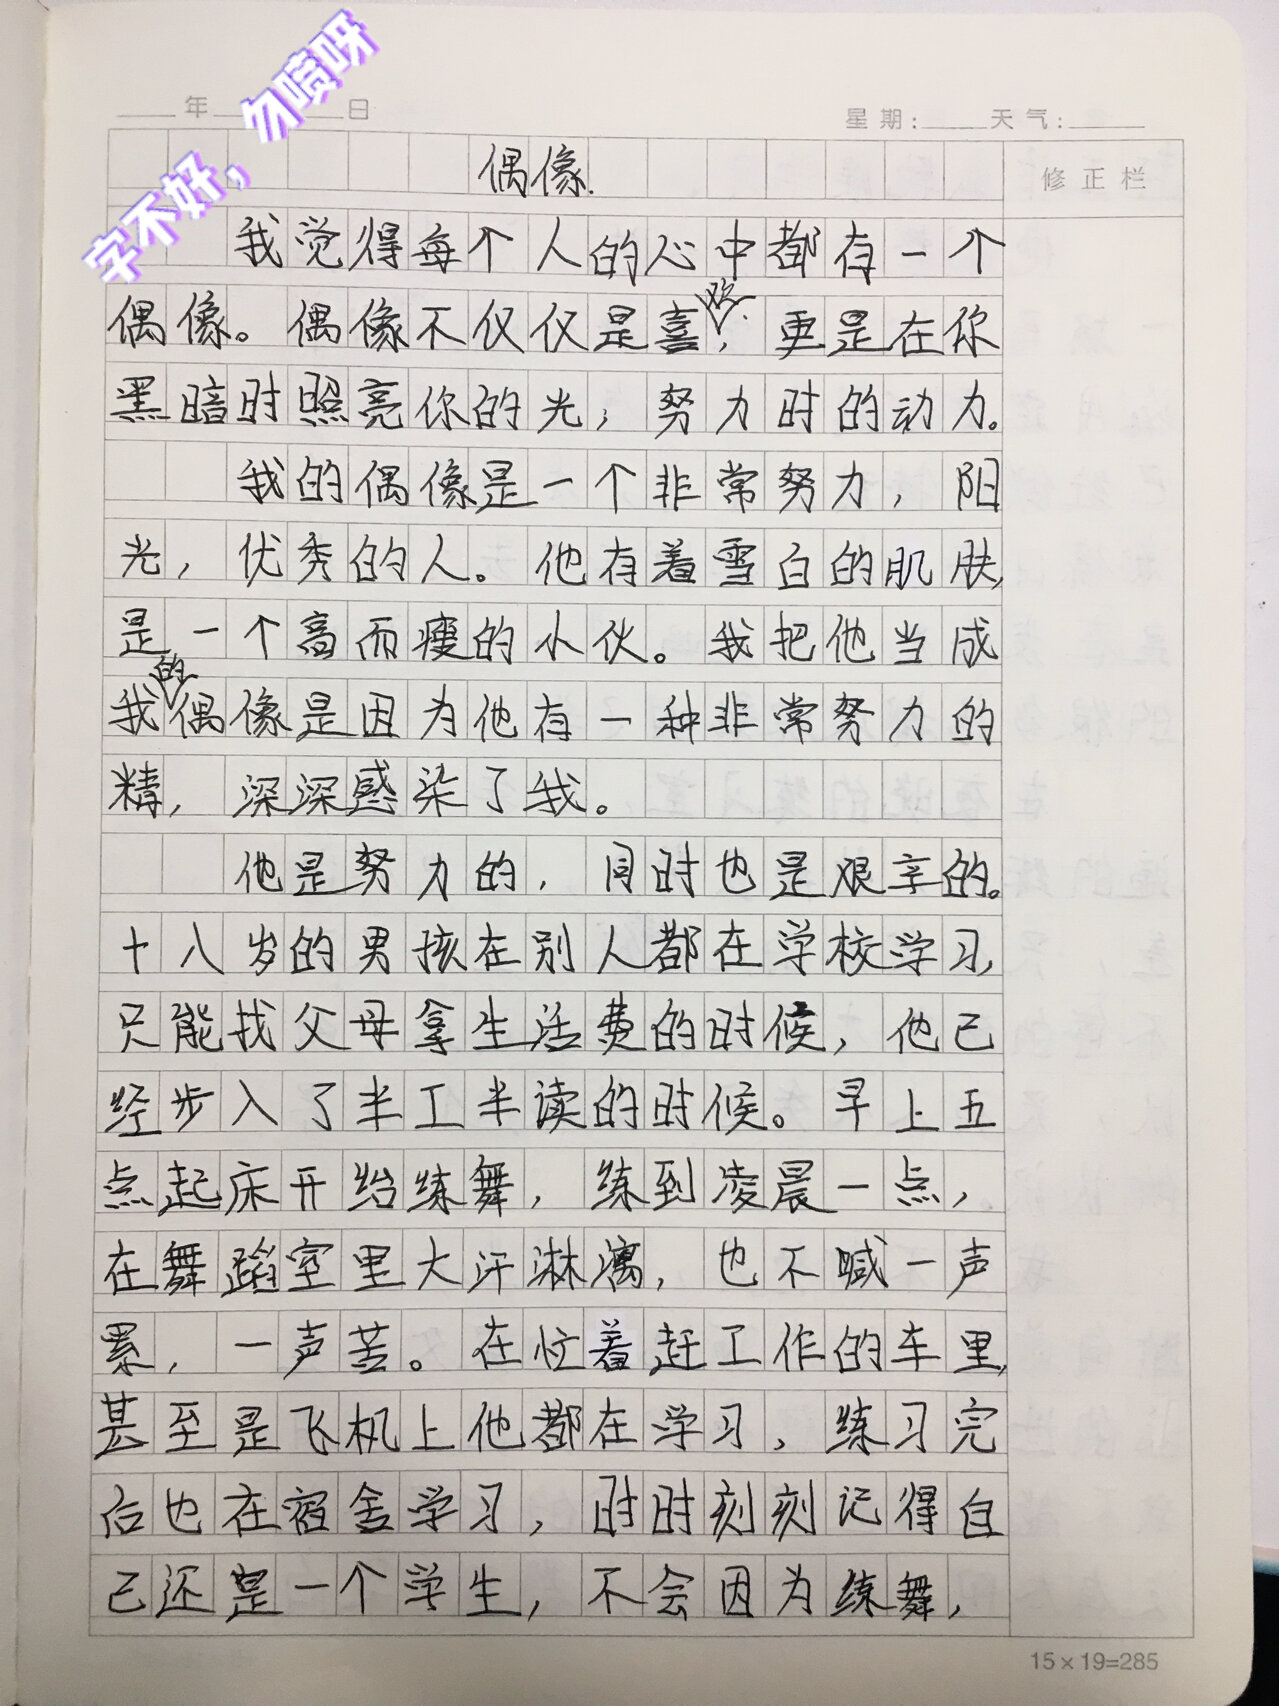 字不好，勿喷呀
年 日
星期: 天气:
修正栏
偶像.
我觉得每个人的心中都有一个
偶像。偶像不仅仅是喜欢，更是在你
黑暗时照亮你的光，努力时的动力。
我的偶像是一个非常努力，阳
光，优秀的人。他有着雪白的肌肤，
是一个高而瘦的小伙。我把他当成
我的偶像是因为他有一种非常努力的
精，深深感染了我。
他是努力的，同时也是艰辛的。
十八岁的男孩在别人都在学校学习，
只能找父母拿生活费的时候，他已
经步入了半工半读的时候。早上五
点起床开始练舞，练到凌晨一点，
在舞蹈室里大汗淋漓，也不喊一声
累，一声苦。在忙着赶工作的车里，
甚至是飞机上他都在学习，练习完
后也在宿舍学习，时时刻刻记得自
己还是一个学生，不会因为练舞，
15×19=285